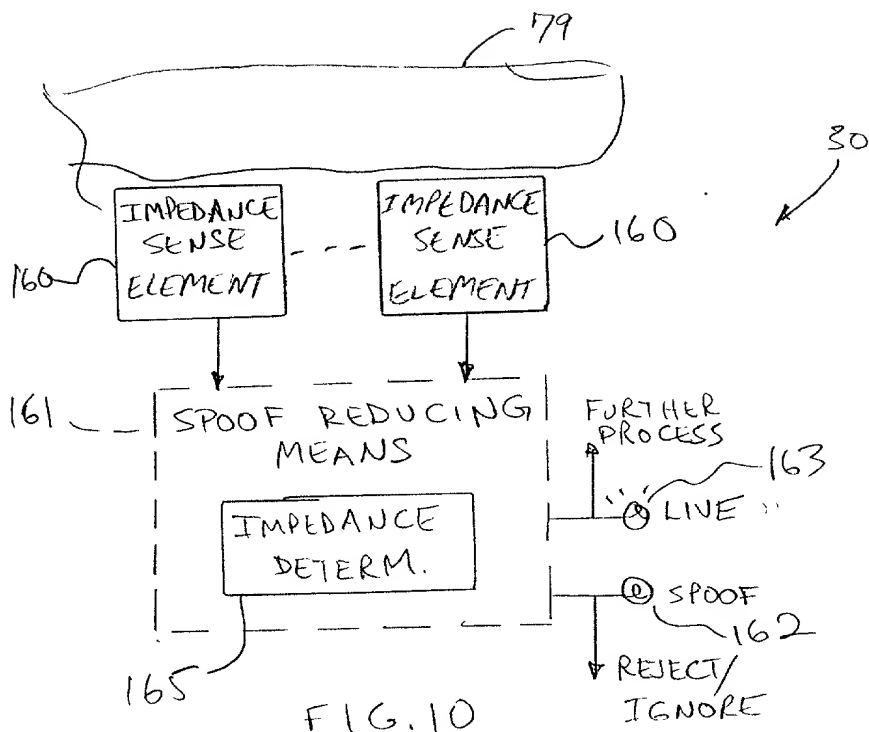 79
30
IMPEDANCE
SENSE
ELEMENT
160
IMPEDANCE
SENSE
ELEMENT
160
161
SPOOF REDUCING
MEANS
IMPEDANCE
DETERM.
165
FURTHER
PROCESS
163
LIVE
SPOOF
162
REJECT/
IGNORE
FIG.10